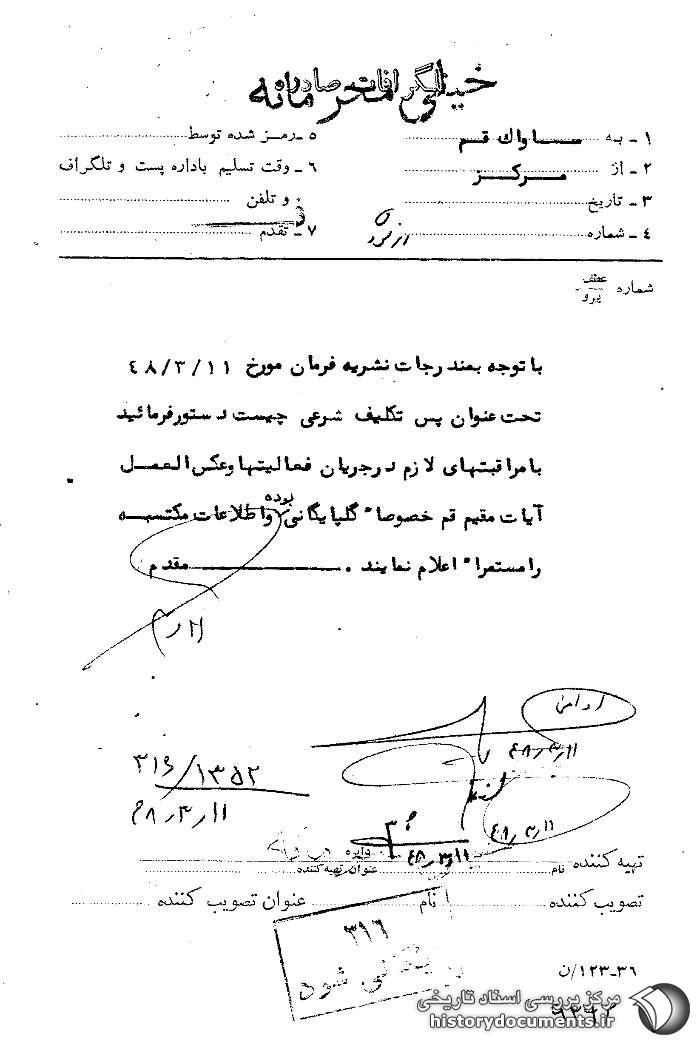 تلگرافات صادره
خیلی محرمانه
۱ - به ساواك قم
۲ - از مرکز
۳ - تاریخ
۴ - شماره
۵ - رمز شده توسط
۶ - وقت تسلیم باداره پست و تلگراف
و تلفن
۷ - تقدم
شماره عطف پیرو
با توجه بمندرجات نشریه فرمان مورخ ۴۸/۳/۱۱
تحت عنوان پس تکلیف شرعی چیست دستورفرمائید
با مراقبتهای لازم درجریان فعالیتها وعکس العمل
آیات مقیم قم خصوصاً گلپایگانی بوده واطلاعات مکتسبه
را مستمراً اعلام نمایند . مقدم
۳۱۶/۱۳۵۲
۴۸/۳/۱۱
۴۸/۳/۱۱
۴۸/۳/۱۱
۴۸/۳/۱۱
تهیه کننده
نام
عنوان تهیه کننده
تصویب کننده نام عنوان تصویب کننده
۳۱۶
بایگانی شود
۳۶-۱۲۳/ن
مرکز بررسی اسناد تاریخی
historydocuments.ir